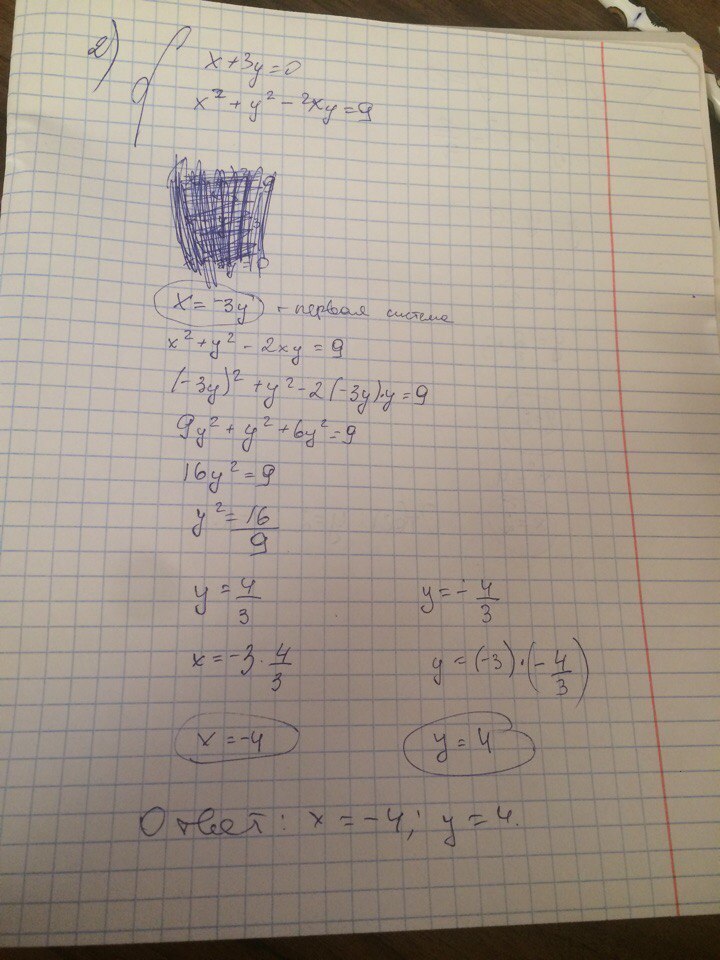 2) x+3y=0
x²+y²-2xy=9
x=-3y - первая система
x²+y²-2xy=9
(-3y)²+y²-2(-3y)·y=9
9y²+y²+6y²=9
16y²=9
y²=16/9
y=4/3 y=-4/3
x=-3·4/3 y=(-3)·(-4/3)
x=-4 y=4
Ответ: x=-4; y=4.